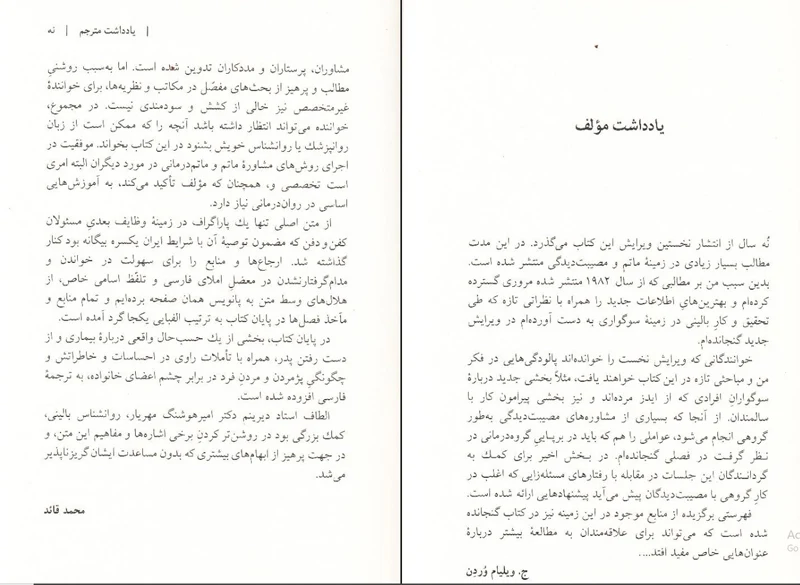 | یادداشت مترجم | نه
مشاوران، پرستاران و مددکاران تدوین شده است. اما به‌سبب روشنی
مطالب و پرهیز از بحث‌های مفصّل در مکاتب و نظریه‌ها، برای خوانندهٔ
غیرمتخصص نیز خالی از کشش و سودمندی نیست. در مجموع،
خواننده می‌تواند انتظار داشته باشد آنچه را که ممکن است از زبان
روانپزشك یا روانشناس خویش بشنود در این کتاب بخواند. موفقیت در
اجرای روش‌های مشاورهٔ ماتم و ماتم‌درمانی در مورد دیگران البته امری
است تخصصی و، همچنان که مؤلف تأکید می‌کند، به آموزش‌هایی
اساسی در روان‌درمانی نیاز دارد.
از متن اصلی تنها یك پاراگراف در زمینهٔ وظایف بعدیِ مسئولان
کفن‌ودفن که مضمون توصیهٔ آن با شرایط ایران یکسره بیگانه بود کنار
گذاشته شد. ارجاع‌ها و منابع را برای سهولت در خواندن و
مدام‌گرفتارنشدن در معضلِ املای فارسی و تلفّظ اسامی خاص، از
هلال‌های وسط متن به پانویس همان صفحه برده‌ایم و تمام منابع و
مآخذ فصل‌ها در پایان کتاب به ترتیب الفبایی یکجا گرد آمده است.
در پایان کتاب، بخشی از یك حسب‌حال واقعی دربارهٔ بیماری و از
دست رفتن پدر، همراه با تأملات راوی در احساسات و خاطراتش و
چگونگیِ پژمردن و مردنِ فرد در برابر چشم اعضای خانواده، به ترجمهٔ
فارسی افزوده شده است.
الطاف استاد دیرینم دکتر امیرهوشنگ مهریار، روانشناس بالینی،
کمك بزرگی بود در روشن‌تر کردنِ برخی اشاره‌ها و مفاهیم این متن، و
در جهت پرهیز از ابهام‌های بیشتری که بدون مساعدت ایشان گریزناپذیر
می‌شد.
محمد قائد
یادداشت مؤلف
نُه سال از انتشار نخستین ویرایش این کتاب می‌گذرد. در این مدت
مطالب بسیار زیادی در زمینهٔ ماتم و مصیبت‌دیدگی منتشر شده است.
بدین سبب من بر مطالبی که از سال ۱۹۸۲ منتشر شده مروری گسترده
کرده‌ام و بهترین‌های اطلاعات جدید را همراه با نظراتی تازه که طی
تحقیق و کارِ بالینی در زمینهٔ سوگواری به دست آورده‌ام در ویرایش
جدید گنجانده‌ام.
خوانندگانی که ویرایش نخست را خوانده‌اند پالودگی‌هایی در فکر
من و مباحثی تازه در این کتاب خواهند یافت، مثلاً بخشی جدید دربارهٔ
سوگوارانِ افرادی که از ایدز مرده‌اند و نیز بخشی پیرامون کار با
سالمندان. از آنجا که بسیاری از مشاوره‌های مصیبت‌دیدگی به‌طور
گروهی انجام می‌شود، عواملی را هم که باید در برپاییِ گروه‌درمانی در
نظر گرفت در فصلی گنجانده‌ام. در بخش اخیر برای کمك به
گردانندگان این جلسات در مقابله با رفتارهای مسئله‌زایی که اغلب در
کارِ گروهی با مصیبت‌دیدگان پیش می‌آید پیشنهادهایی ارائه شده است.
فهرستی برگزیده از منابع موجود در این زمینه نیز در کتاب گنجانده
شده است که می‌تواند برای علاقه‌مندان به مطالعهٔ بیشتر دربارهٔ
عنوان‌هایی خاص مفید افتد....
ج. ویلیام وُردِن
Ac
Go